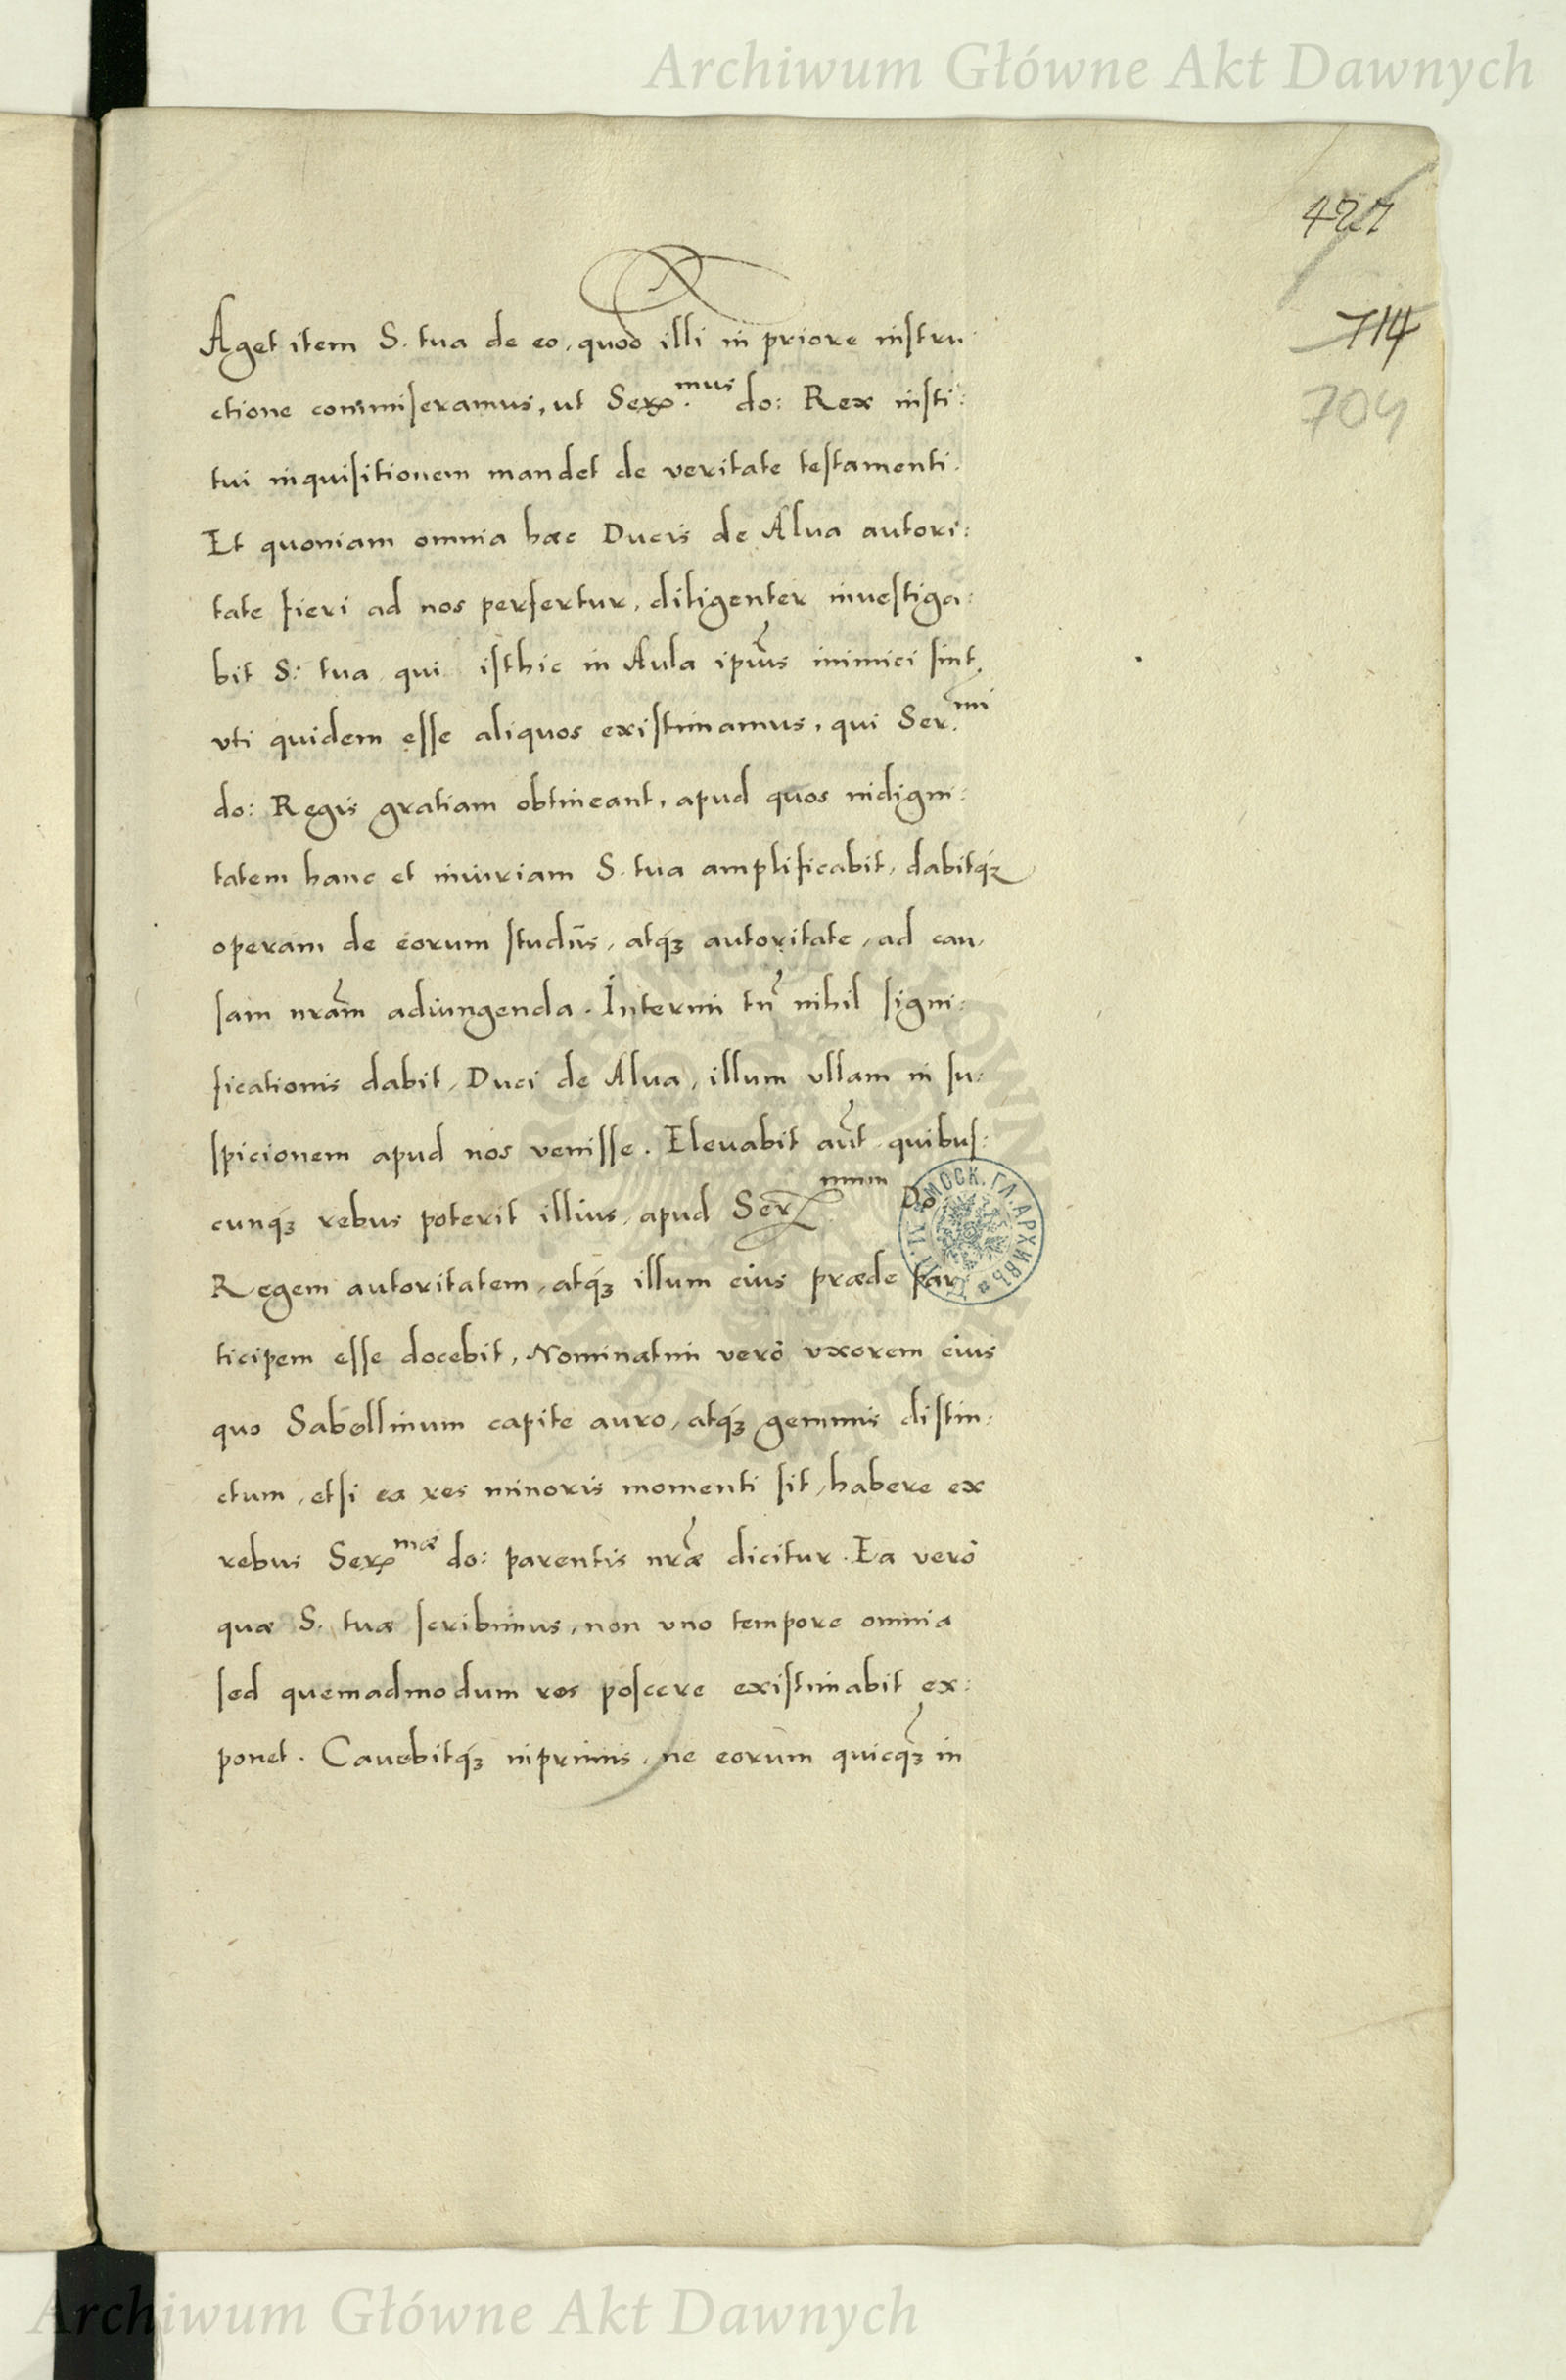 Archiwum Główne Akt Dawnych
427
714
704
Aget item S. tua de eo, quod illi in priore instru:
ctione commiseramus, ut Ser.mus do: Rex insti:
tui inquisitionem mandet de veritate testamenti.
Et quoniam omnia haec Ducis de Alua autori:
tate fieri ad nos perfertur, diligenter inuestiga:
bit S: tua qui isthic in Aula ipius inimici sint,
vti quidem esse aliquos existimamus, qui Ser.mi
do: Regis gratiam obtineant, apud quos indigni:
tatem hanc et iniuriam S. tua amplificabit, dabitq3
operam de eorum studijs, atq3 autoritate, ad cau,
sam nram adiungenda. Interim tn nihil signi:
ficationis dabit, Duci de Alua, illum ullam in su:
spicionem apud nos venisse. Eleuabit aut quibus:
cunq3 rebus poterit illius, apud Ser.mum Do
Regem autoritatem, atq3 illum eius praede par
ticipem esse docebit, Nominatim verò vxorem eius
quo Sabellinum capite auro, atq3 gemmis distin:
ctum, etsi ea res minoris momenti sit, habere ex
rebus Ser.mae do: parentis nrae dicitur. Ea verò
quae S. tuae scribimus, non vno tempore omnia
sed quemadmodum res poscere existimabit ex:
ponet. Cauebitq3 inprimis, ne eorum quicq3 in
МОСК. ГЛ. АРХИВЪ
Archiwum Główne Akt Dawnych